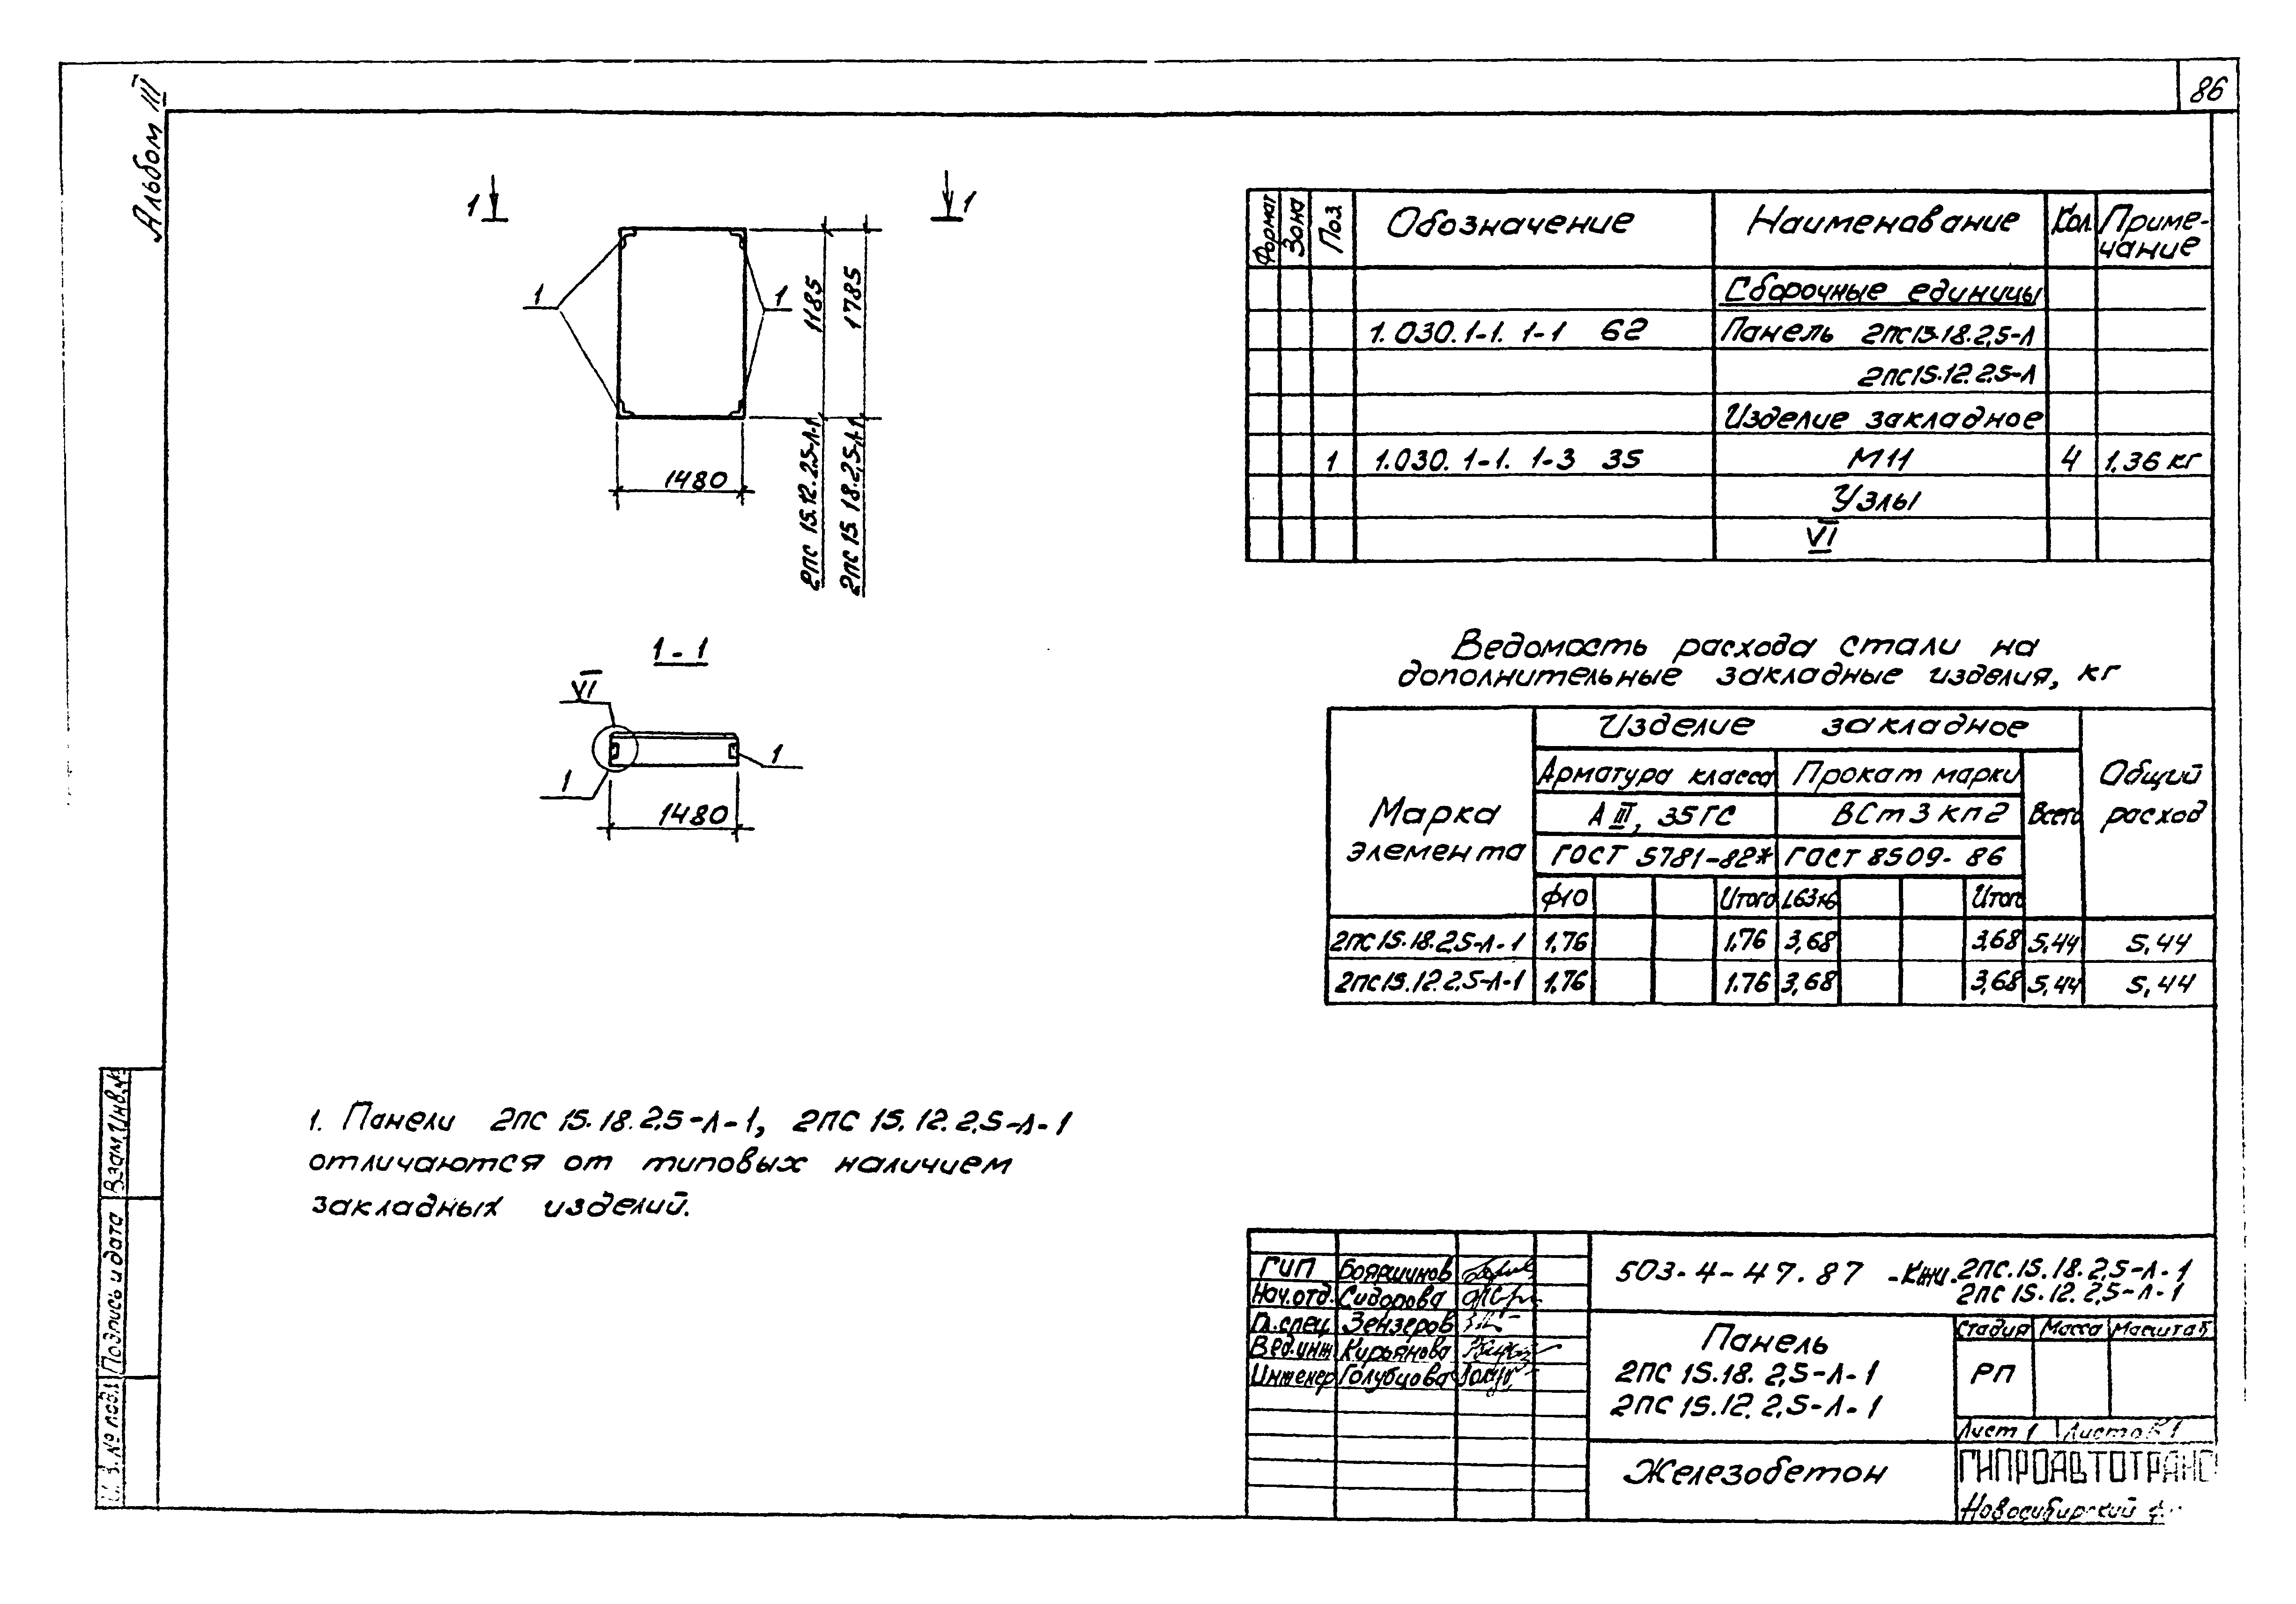 86
Альбом III
1 1
1 1
1185
1785
1480
2ПС 15.12.2,5-Л-1
2ПС 15.18.2,5-Л-1
1-1
VI
1
1
1480
Формат Зона Поз. Обозначение Наименование Кол. Приме-
чание
Сборочные единицы
1.030.1-1. 1-1 62 Панель 2ПС15.18.2,5-Л
2ПС15.12.2,5-Л
Изделие закладное
1 1.030.1-1. 1-3 35 М11 4 1.36 кг
Узлы
VI
Ведомость расхода стали на
дополнительные закладные изделия, кг
Марка элемента Изделие закладное Общий расход
Арматура класса Прокат марки Всего
А III, 35ГС ВСт3кп2
ГОСТ 5781-82* ГОСТ 8509-86
ф10 Итого L63×6 Итого
2ПС15.18.2,5-Л-1 1,76 1,76 3,68 3,68 5,44 5,44
2ПС15.12.2,5-Л-1 1,76 1.76 3,68 3,68 5,44 5,44
1. Панели 2ПС 15.18.2,5-Л-1, 2ПС 15.12.2,5-Л-1
отличаются от типовых наличием
закладных изделий.
Взам. Инв. №
Подпись и дата
№ подл.
ГИП Бояршинов
Нач.отд. Сидорова
Гл.спец Зензеров
Вед.инж Кирьянова
Инженер Голубцова
503-4-47.87 -КЖИ. 2ПС.15.18.2,5-Л-1
2ПС 15.12.2,5-Л-1
Панель
2ПС 15.18.2,5-Л-1
2ПС 15.12.2,5-Л-1
Стадия Масса Масштаб
РП
Лист 1 Листов 1
Железобетон
ГИПРОАВТОТРАНС
Новосибирский ф